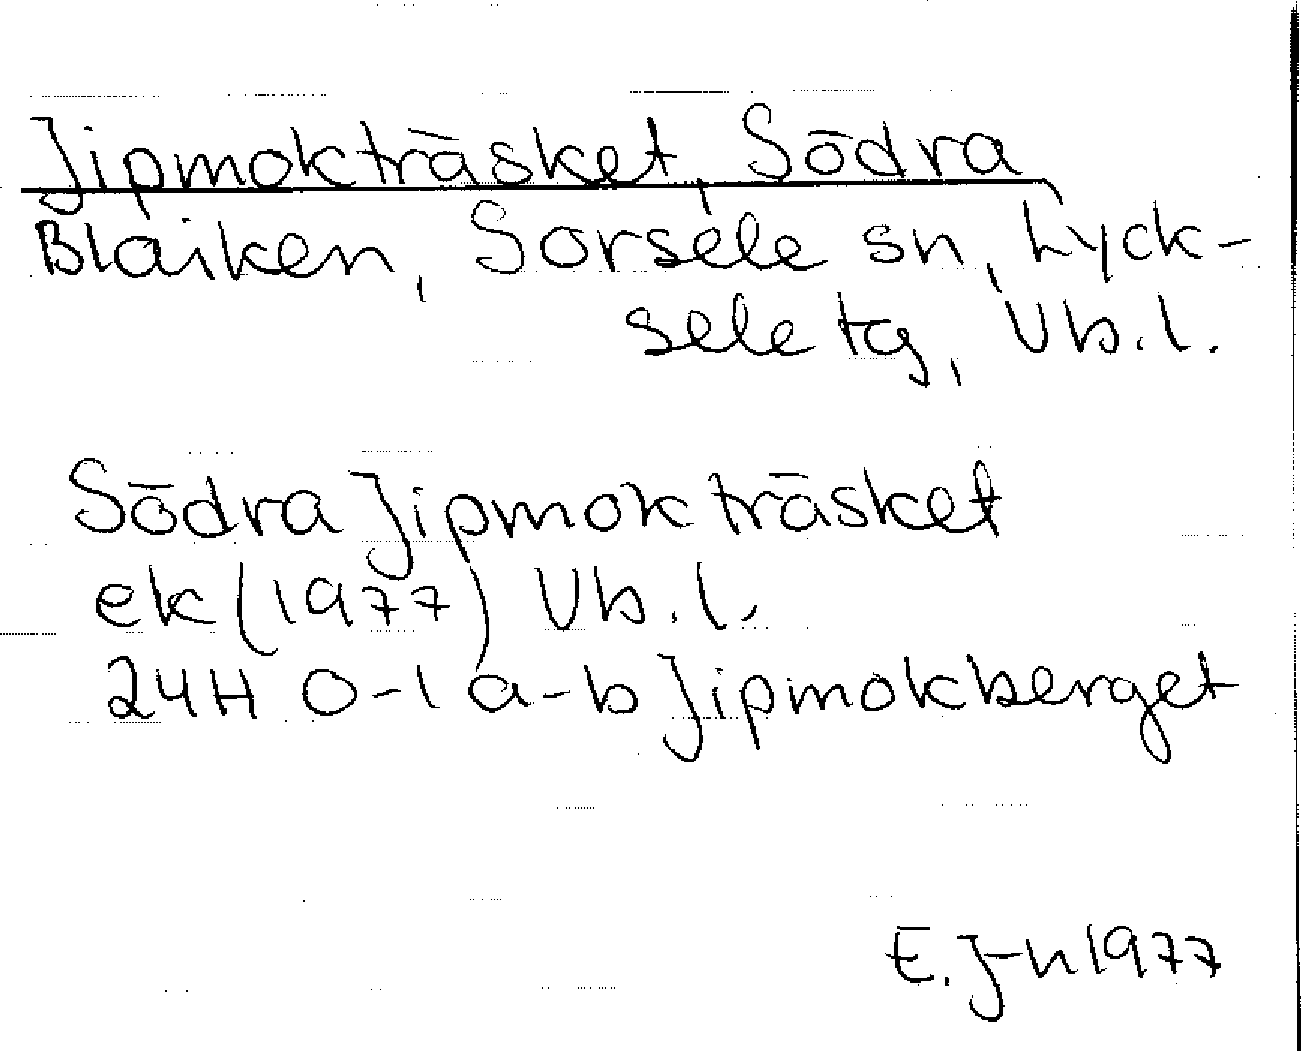 Jipmokträsket, Södra,
Blaiken, Sorsele sn, Lyck-
sele tg, Vb.l.
Södra Jipmokträsket
ek (1977) Vb.l.
24H 0-1 a-b Jipmokberget
E. J-n 1977